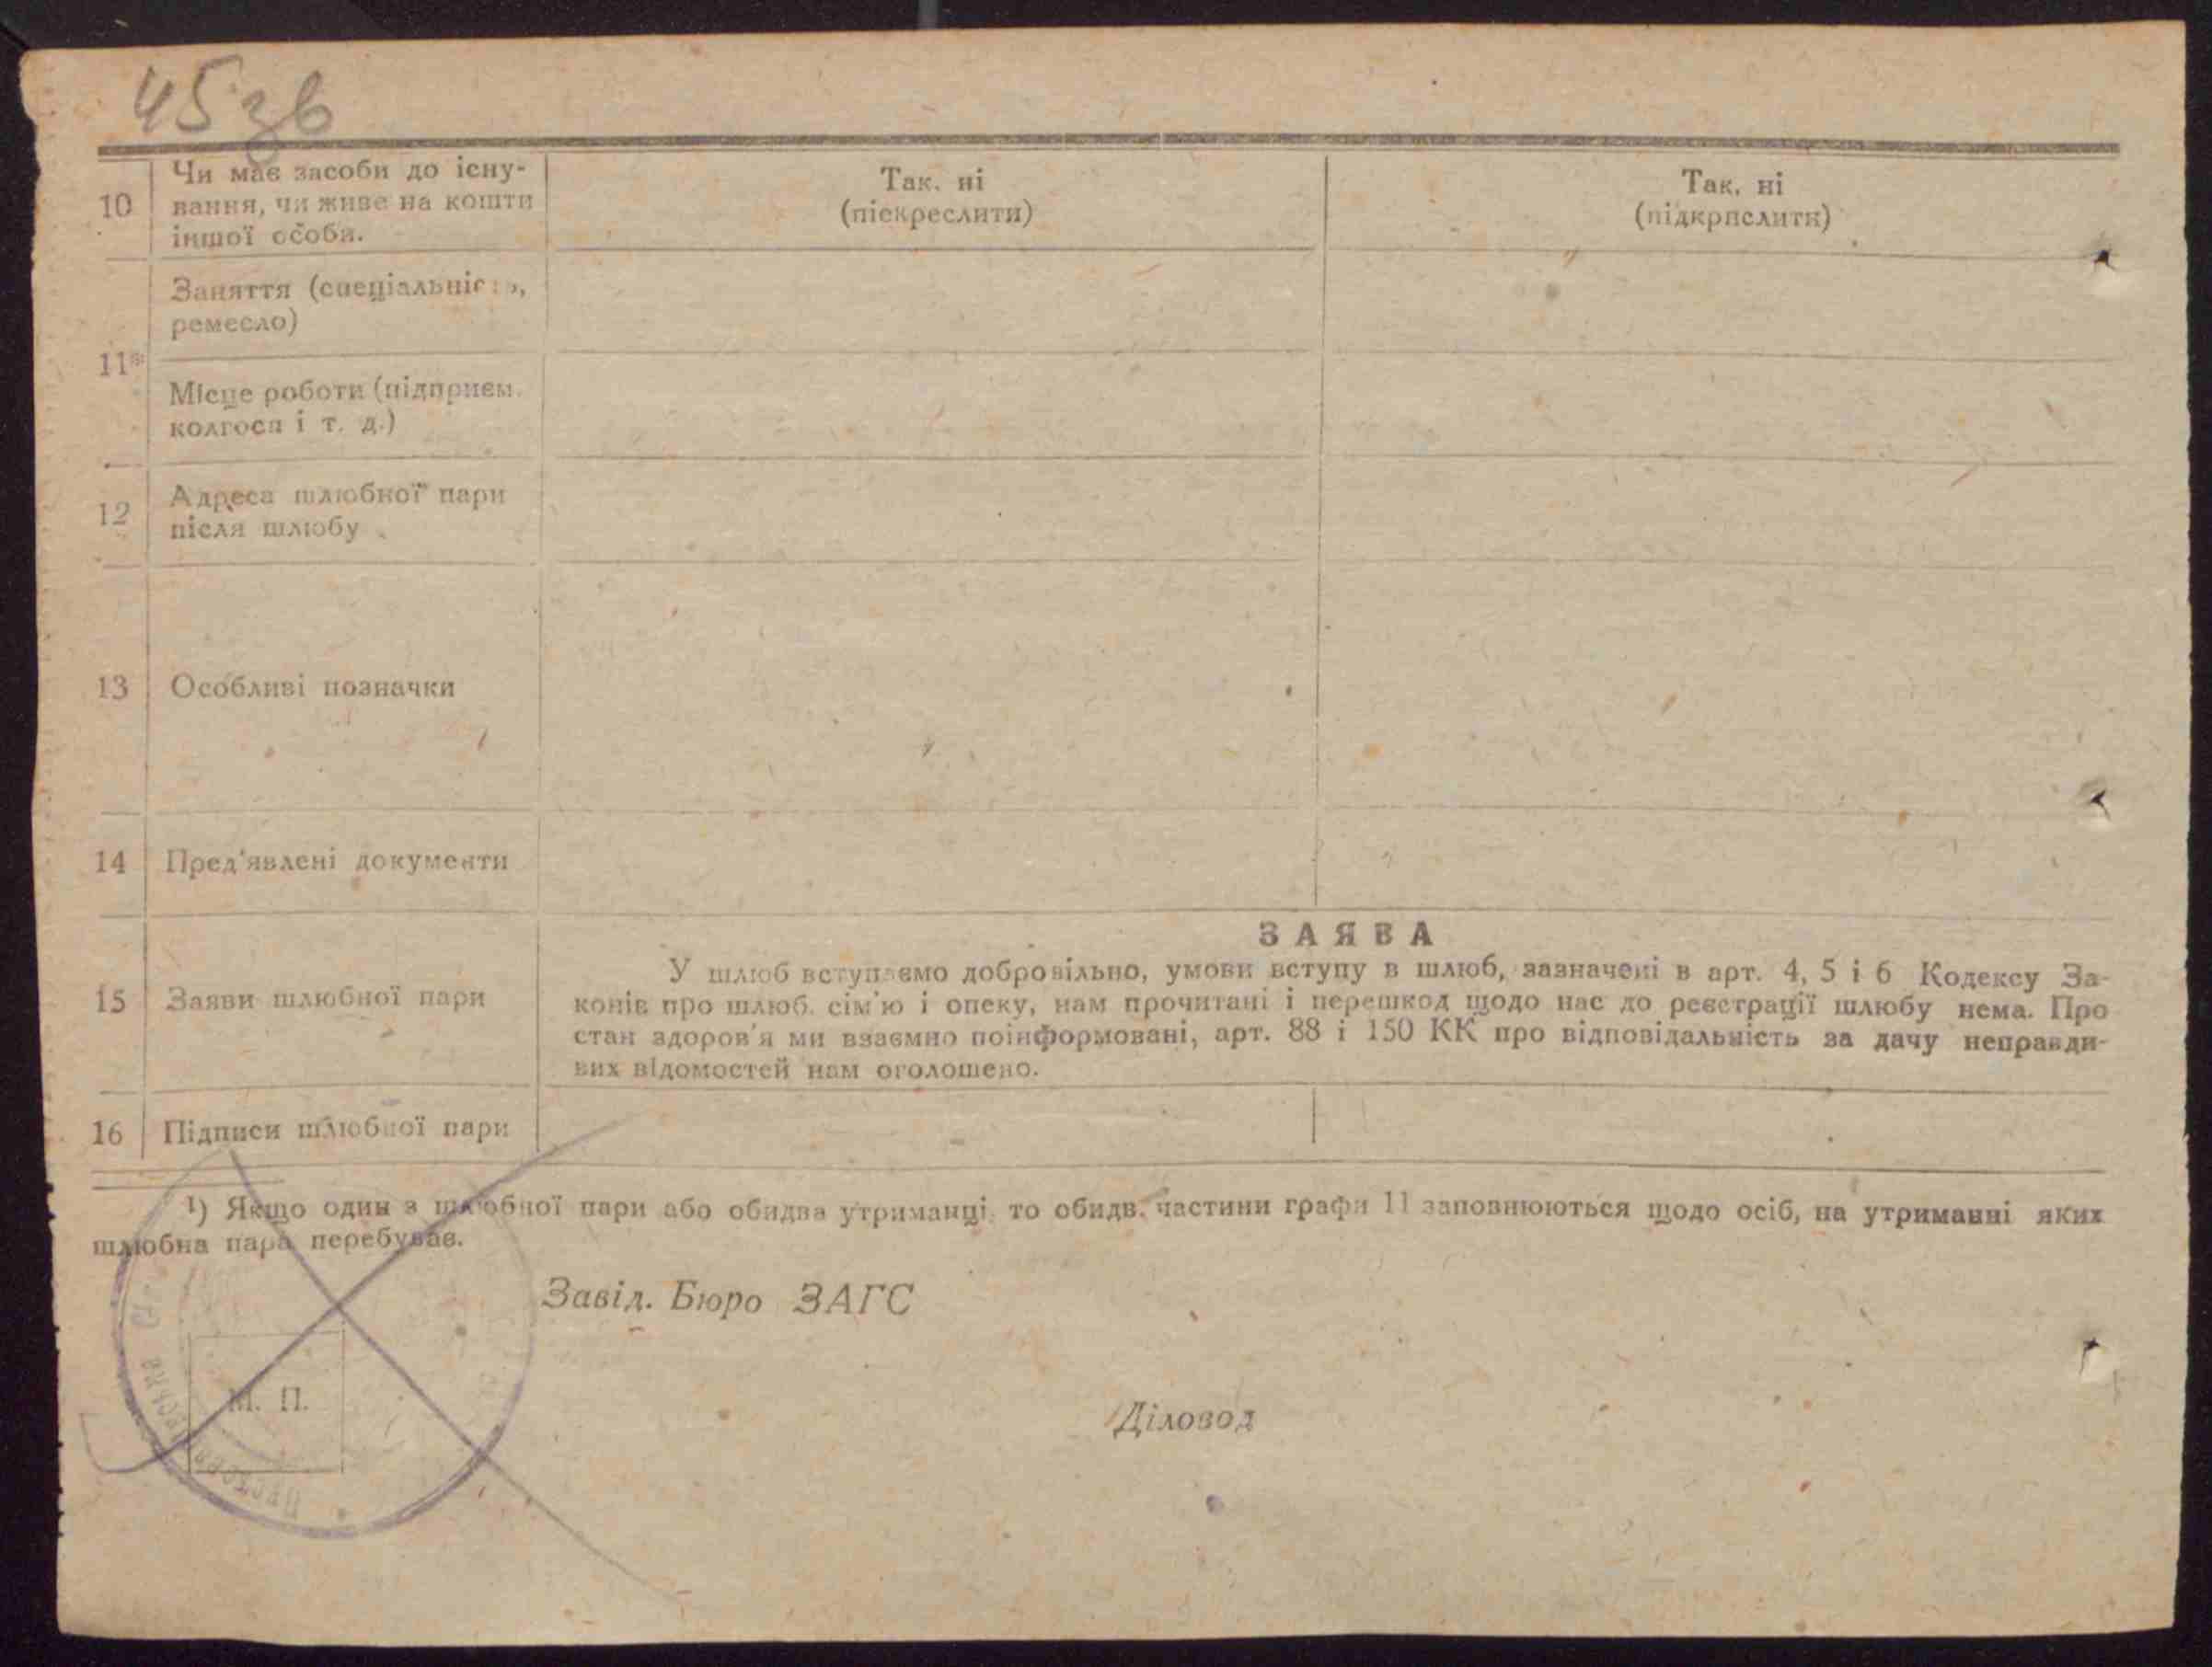 45 зв
10
Чи має засоби до існу-
вання, чи живе на кошти
іншої особи.
Так, ні
(піскреслити)
Так, ні
(підкрислити)
11
Заняття (спеціальність,
ремесло)
Місце роботи (підприєм.
колгосп і т. д.)
12
Адреса шлюбної пари
після шлюбу
13
Особливі позначки
14
Пред'явлені документи
15
Заяви шлюбної пари
ЗАЯВА
У шлюб вступаємо добровільно, умови вступу в шлюб, зазначені в арт. 4, 5 і 6 Кодексу За-
конів про шлюб. сім'ю і опеку, нам прочитані і перешкод щодо нас до реєстрації шлюбу нема. Про
стан здоров'я ми взаємно поінформовані, арт. 88 і 150 КК про відповідальність за дачу неправди-
вих відомостей нам оголошено.
16
Підписи шлюбної пари
1) Якщо один з шлюбної пари або обидва утриманці, то обидв. частини графи 11 заповнюються щодо осіб, на утриманні яких
шлюбна пара перебуває.
Завід. Бюро ЗАГС
М. П.
Діловод